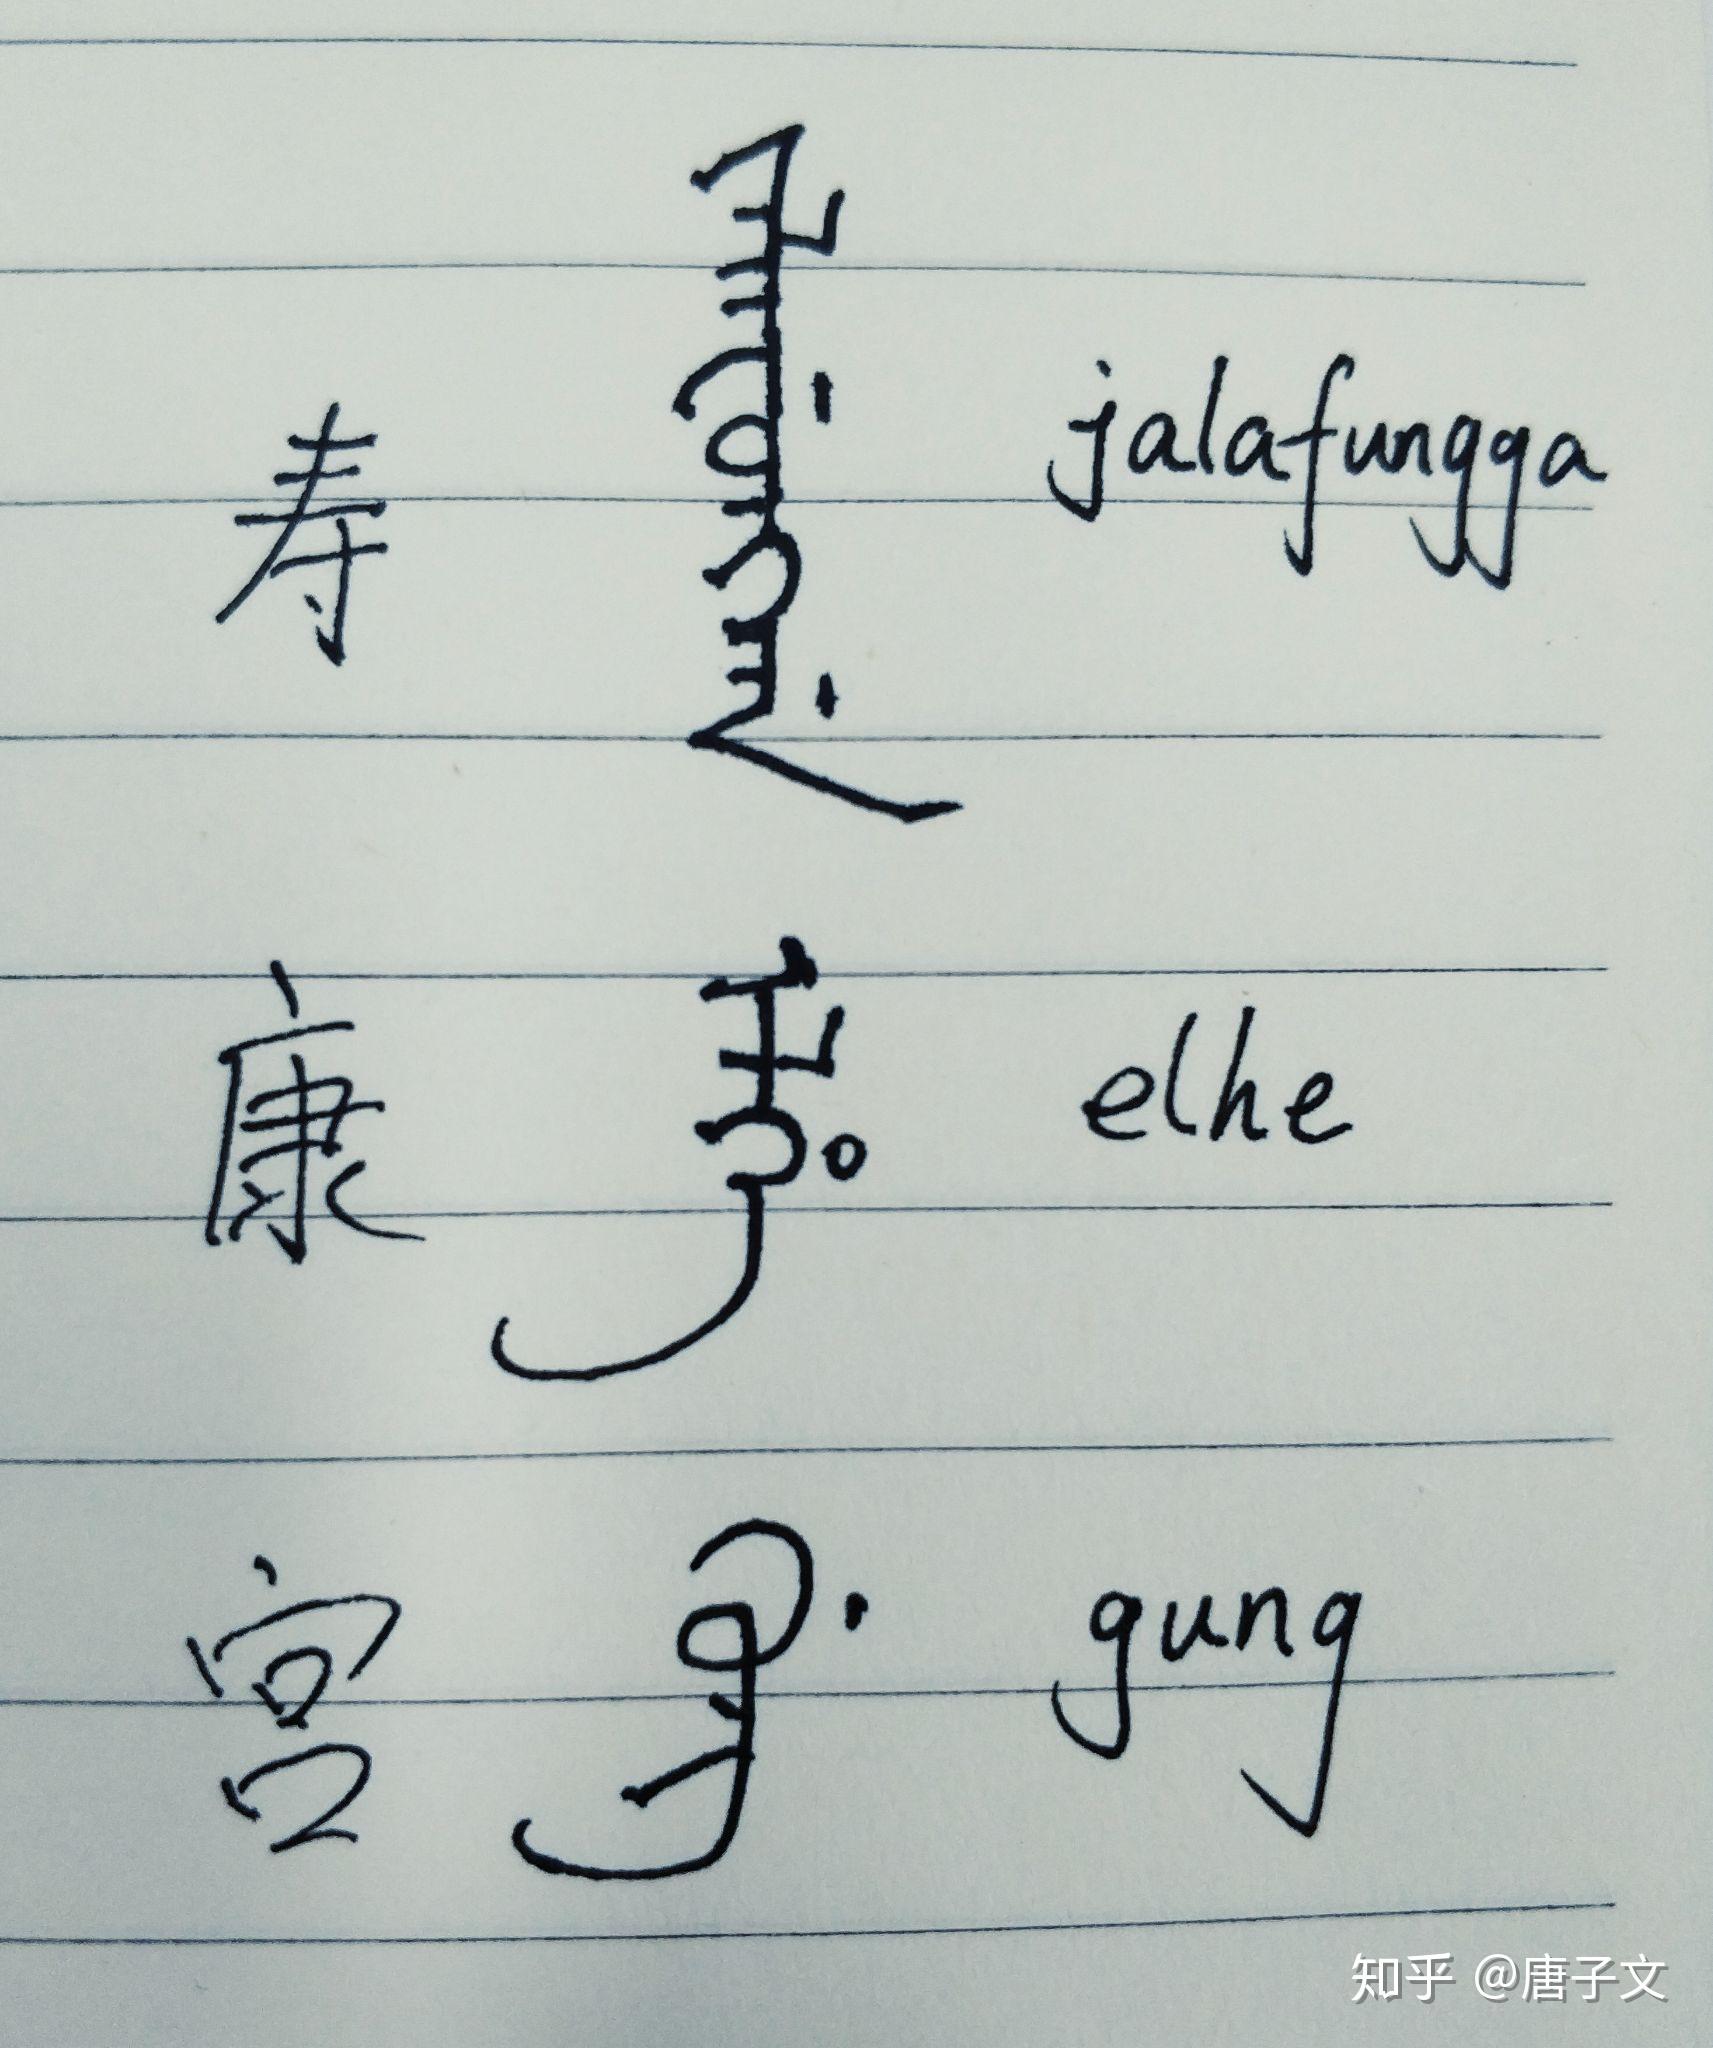 寿 ᠵᠠᠯᠠᡶᡠᠩᡤᠠ jalafungga
康 ᡝᠯᡥᡝ elhe
宫 ᡤᡠᠩ gung
知乎 @唐子文